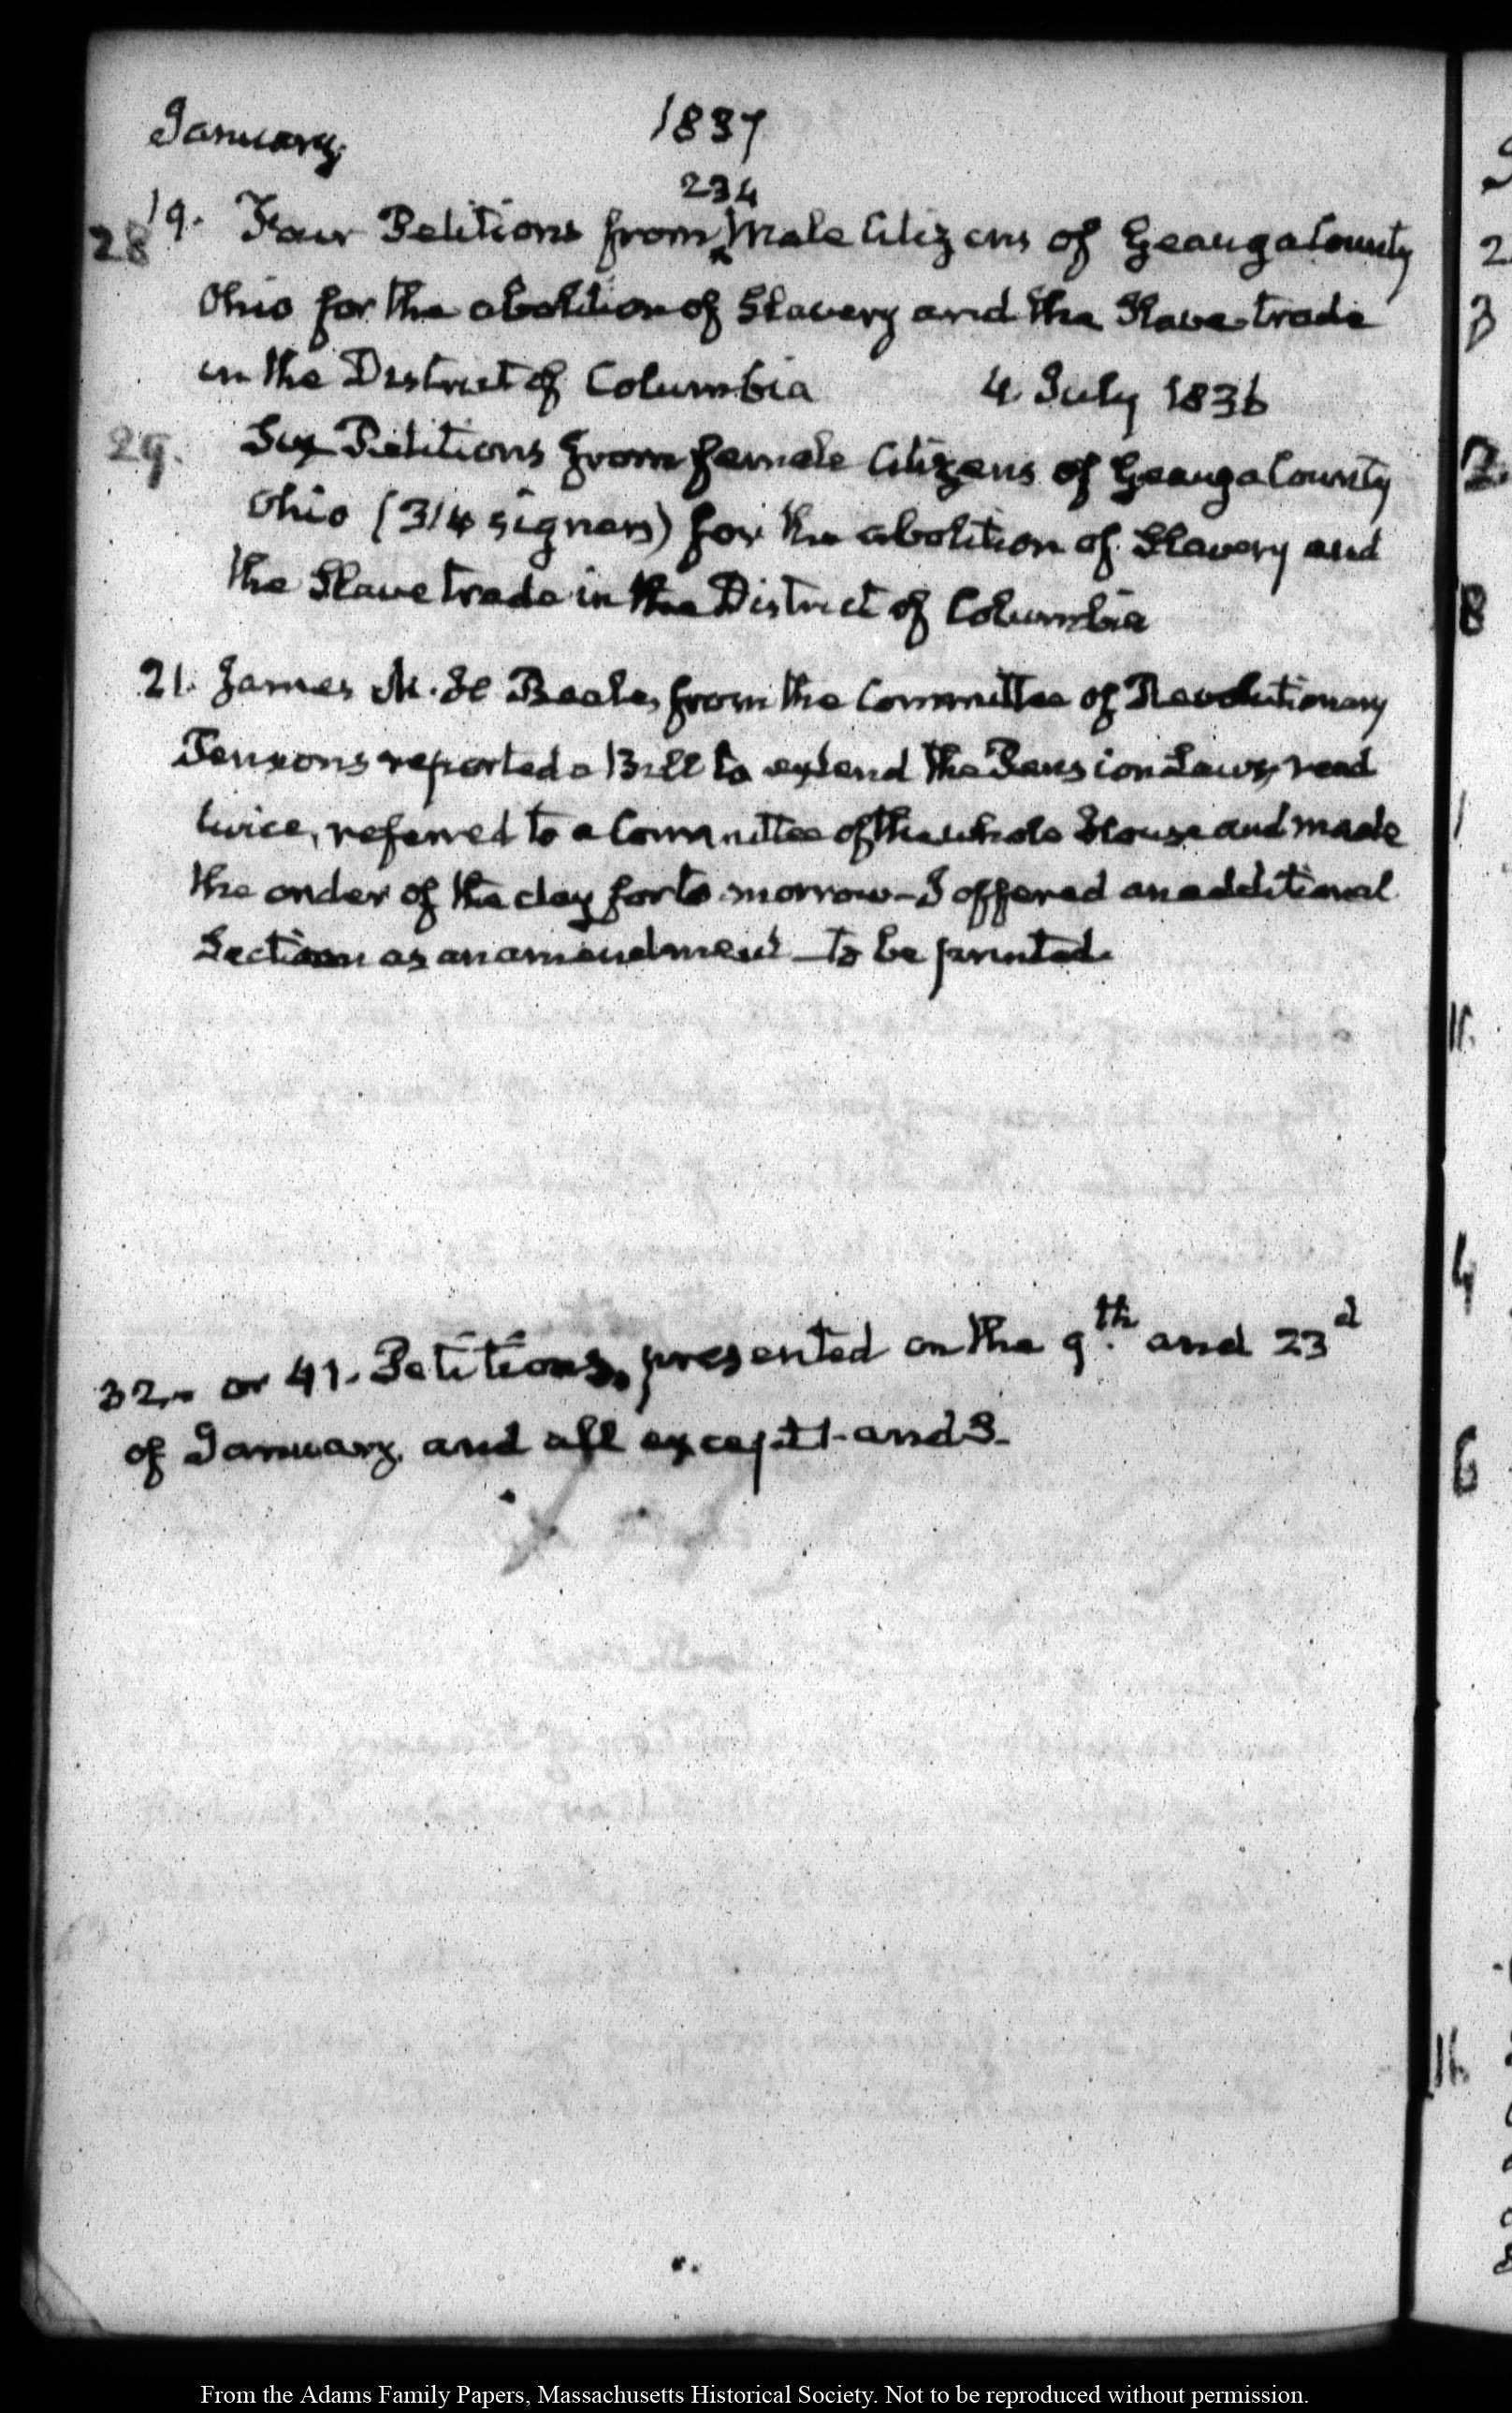 January.
1837
234
28 19. Four Petitions from ^ Male Citizens of Geauga County
Ohio for the abolition of Slavery and the Slave-trade
in the District of Columbia 4 July 1836
29. Six Petitions from female Citizens of Geauga County
Ohio (314 signers) for the abolition of Slavery and
the Slave trade in the District of Columbia
21. James M. H. Beale, from the Committee of Revolutionary
Pensions reported a Bill to extend the Pension Laws, read
twice, referred to a Committee of the whole House and made
the order of the day for to-morrow—I offered an additional
Section as an amendment—to be printed.
32.- or 41. Petitions, presented on the 9th. and 23d
of January, and all except 1- and 3-
From the Adams Family Papers, Massachusetts Historical Society. Not to be reproduced without permission.